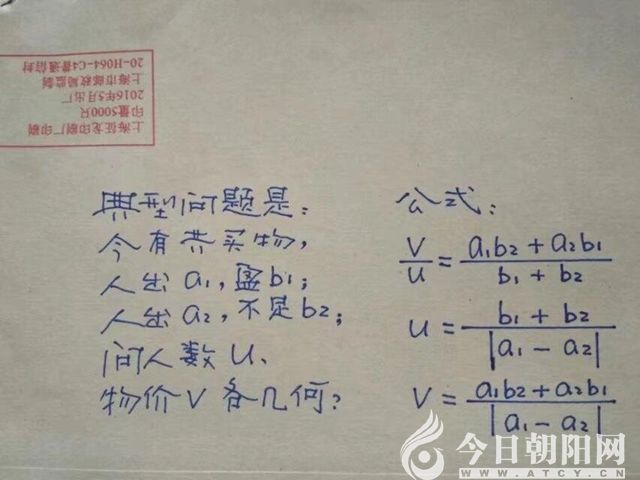 上海征龙印刷厂印刷
印量5000只
2016年5月出厂
上海市邮政局监制
20-H064-C4普通信封
典型问题是：
今有共买物，
人出 a₁，盈b₁；
人出 a₂，不足b₂；
问人数 u、
物价 v 各几何？
公式：
v/u = (a₁b₂ + a₂b₁)/(b₁ + b₂)
u = (b₁ + b₂)/|a₁ - a₂|
v = (a₁b₂ + a₂b₁)/|a₁ - a₂|
今日朝阳网
WWW.ATCY.CN